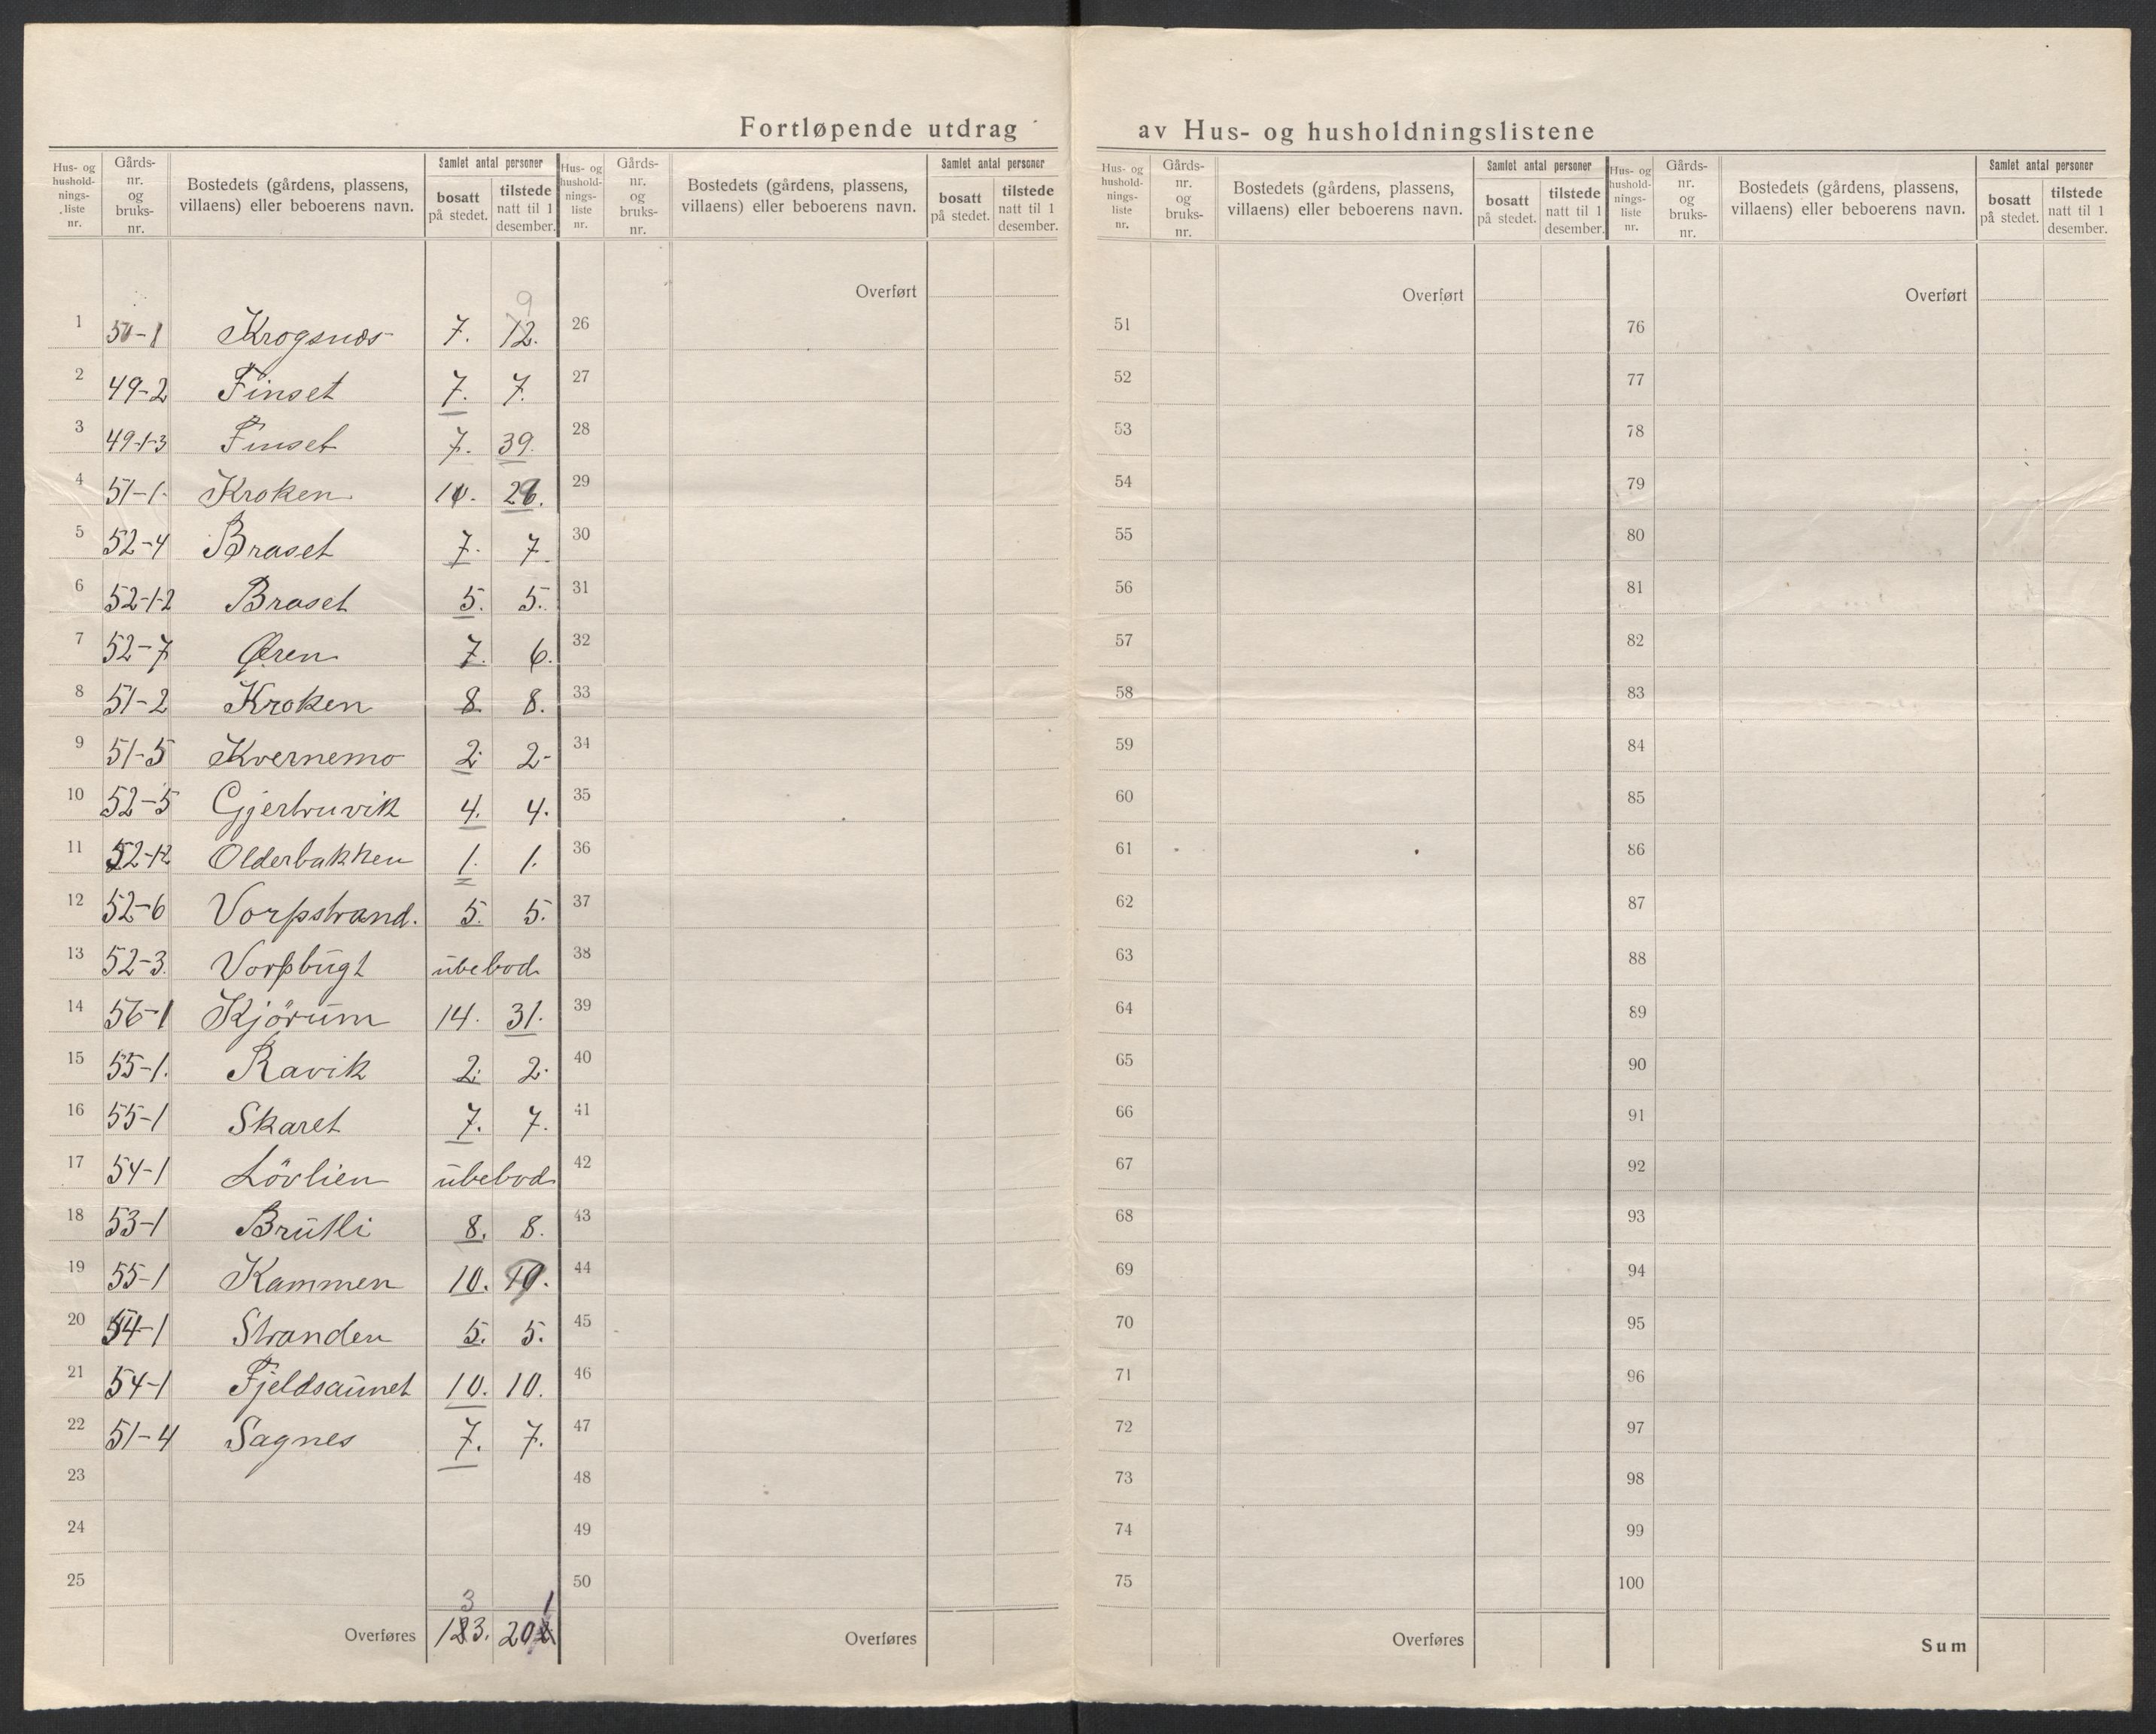 Fortløpende utdrag av Hus- og husholdningslistene
Hus- og hushold-nings-liste nr. | Gårds-nr. og bruks-nr. | Bostedets (gårdens, plassens, villaens) eller beboerens navn. | Samlet antal personer | bosatt på stedet. | tilstede natt til 1 desember.
Hus- og hushold-nings-liste nr. | Gårds-nr. og bruks-nr. | Bostedets (gårdens, plassens, villaens) eller beboerens navn. | Samlet antal personer | bosatt på stedet. | tilstede natt til 1 desember.
Hus- og hushold-nings-liste nr. | Gårds-nr. og bruks-nr. | Bostedets (gårdens, plassens, villaens) eller beboerens navn. | Samlet antal personer | bosatt på stedet. | tilstede natt til 1 desember.
Hus- og hushold-nings-liste nr. | Gårds-nr. og bruks-nr. | Bostedets (gårdens, plassens, villaens) eller beboerens navn. | Samlet antal personer | bosatt på stedet. | tilstede natt til 1 desember.
Overført Overført Overført
9
1 50-1 Krogsnæs 7. 12. 26 51 76
2 49-2 Finset 7. 7. 27 52 77
3 49-1-3 Finset 7. 39. 28 53 78
4 51-1. Kroken 10. 26. 29 54 79
5 52-4 Braset 7. 7. 30 55 80
6 52-1-2 Braset 5. 5. 31 56 81
7 52-7 Øren 7. 6. 32 57 82
8 51-2 Kroken 8 8. 33 58 83
9 51-5 Kvernemo 2. 2- 34 59 84
10 52-5 Gjertruvik 4. 4. 35 60 85
11 52-12 Olderbakken 1. 1. 36 61 86
12 52-6 Vorpstrand. 5. 5. 37 62 87
13 52-3. Vorpbugt ubebod. 38 63 88
14 56-1 Kjörum 14. 31. 39 64 89
15 55-1. Ravik 2. 2. 40 65 90
16 55-1 Skaret 7. 7. 41 66 91
17 54-1 Lövlien ubebod. 42 67 92
18 53-1 Brutli 8. 8. 43 68 93
19 55-1 Kammen 10. 44 69 94
20 54-1 Stranden 5. 5. 45 70 95
21 54-1 Fjeldsaunet 10. 10. 46 71 96
22 51-4 Sagnes 7. 7. 47 72 97
23 48 73 98
24 49 74 99
25 50 75 100
3 1
Overføres 123. 202 Overføres Overføres Sum